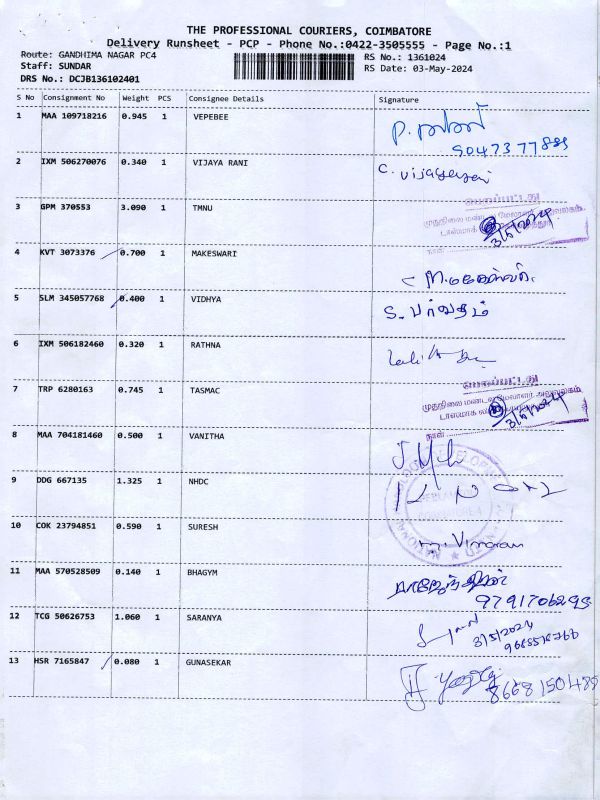 THE PROFESSIONAL COURIERS, COIMBATORE
Delivery Runsheet - PCP - Phone No.:0422-3505555 - Page No.:1
Route: GANDHIMA NAGAR PC4 RS No.: 1361024
Staff: SUNDAR RS Date: 03-May-2024
DRS No.: DCJB136102401
S No Consignment No Weight PCS Consignee Details Signature
1 MAA 109718216 0.945 1 VEPEBEE
2 IXM 506270076 0.340 1 VIJAYA RANI
3 GPM 370553 3.090 1 TMNU
பெறப்பட்டது
4 KVT 3073376 0.700 1 MAKESWARI
5 SLM 345057768 0.400 1 VIDHYA S. பர்வதம்
6 IXM 506182460 0.320 1 RATHNA
7 TRP 6280163 0.745 1 TASMAC
பெறப்பட்டது
8 MAA 704181460 0.500 1 VANITHA
9 DDG 667135 1.325 1 NHDC
10 COK 23794851 0.590 1 SURESH
11 MAA 570528509 0.140 1 BHAGYM
12 TCG 50626753 1.060 1 SARANYA
3/5/2024
13 HSR 7165847 0.080 1 GUNASEKAR